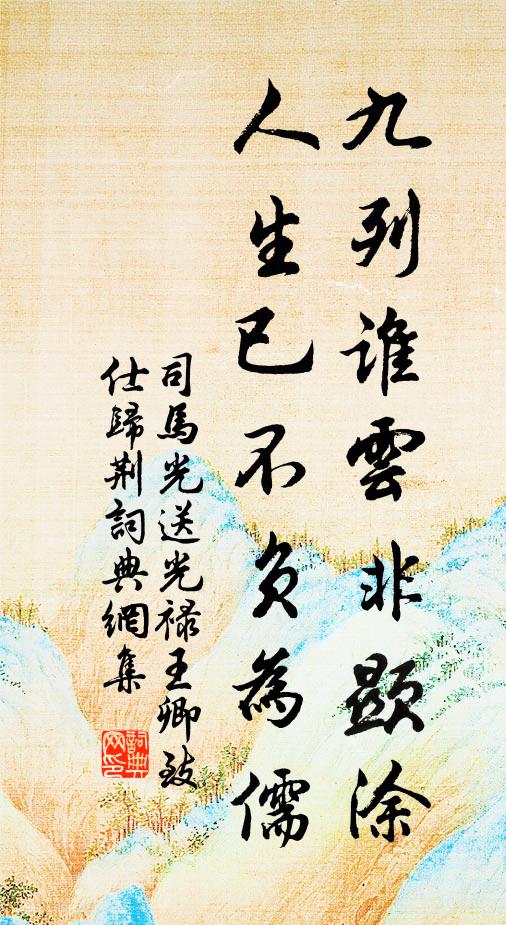 九列誰雲非顯涂
人生已不負為儒
司馬光送光祿王卿致
仕歸荆詞典網集
詞典
网印